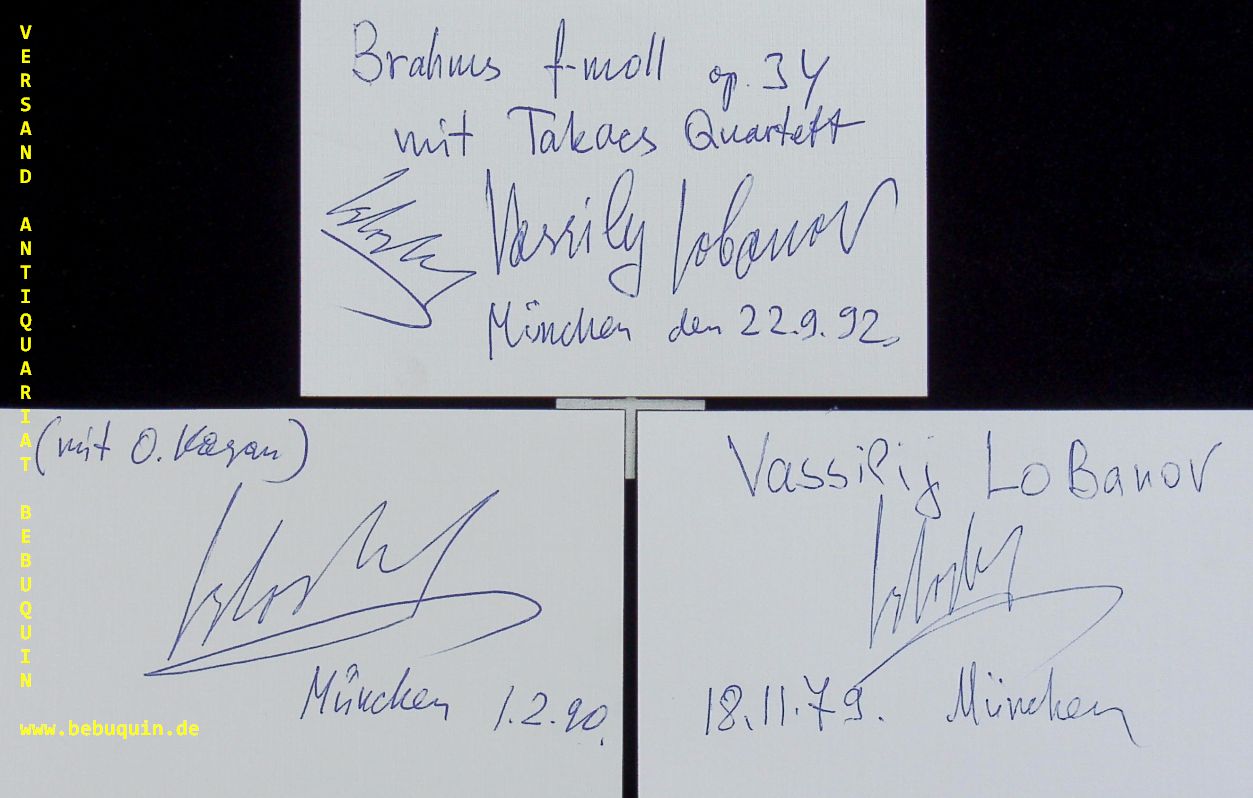 Brahms f-moll op. 34
mit Takacs Quartett
Vassily Lobanov
München den 22.9.92.
(mit O. Kagan)
München 1.2.90.
Vassilij LoBanov
18.11.79. München
VERSAND ANTIQUARIAT BEBUQUIN
www.bebuquin.de